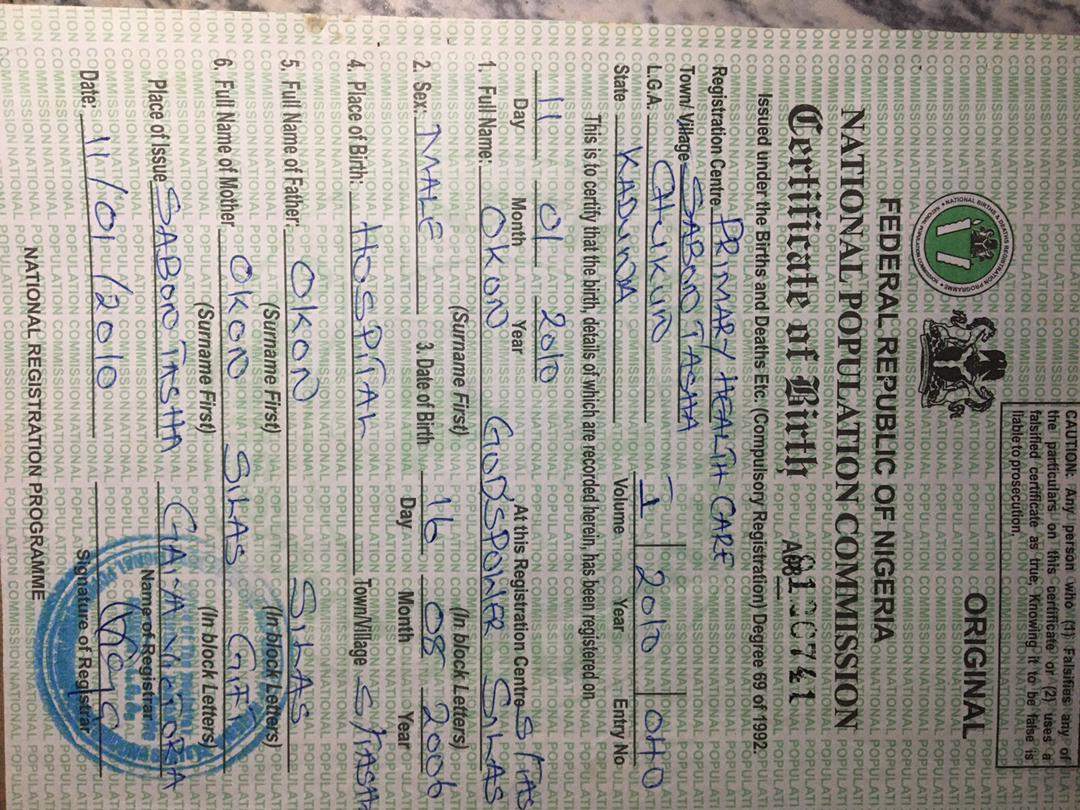 CAUTION: Any person who (1) Falsifies any of
the particulars on this certificate or (2) uses a
falsified certificate as true, Knowing it to be false is
liable to prosecution.
ORIGINAL
FEDERAL REPUBLIC OF NIGERIA
NATIONAL POPULATION COMMISSION
Certificate of Birth
Issued under the Births and Deaths Etc. (Compulsory Registration) Degree 69 of 1992.
Registration Centre PRIMARY HEALTH CARE
Town/ Village SABON TASHA
L.G.A. CHIKUN 1 2010 040
State KADUNA Volume Year Entry No
This is to certify that the birth, details of which are recorded herein, has been registered on
11 01 2010 At this Registration Centre S/TAS
Day Month Year
1. Full Name: OKON GODSPOWER SILAS
(Surname First) (In block Letters)
2. Sex: MALE 3. Date of Birth 16 08 2006
Day Month Year
4. Place of Birth: HOSPITAL Town/Village S/TASHA
5. Full Name of Father: OKON SILAS
(Surname First) (In block Letters)
6. Full Name of Mother OKON SILAS GIFT
(Surname First) (In block Letters)
Place of Issue SABON TASHA
Name of Registrar
Date: 11/01/2010
Signature of Registrar
NATIONAL REGISTRATION PROGRAMME